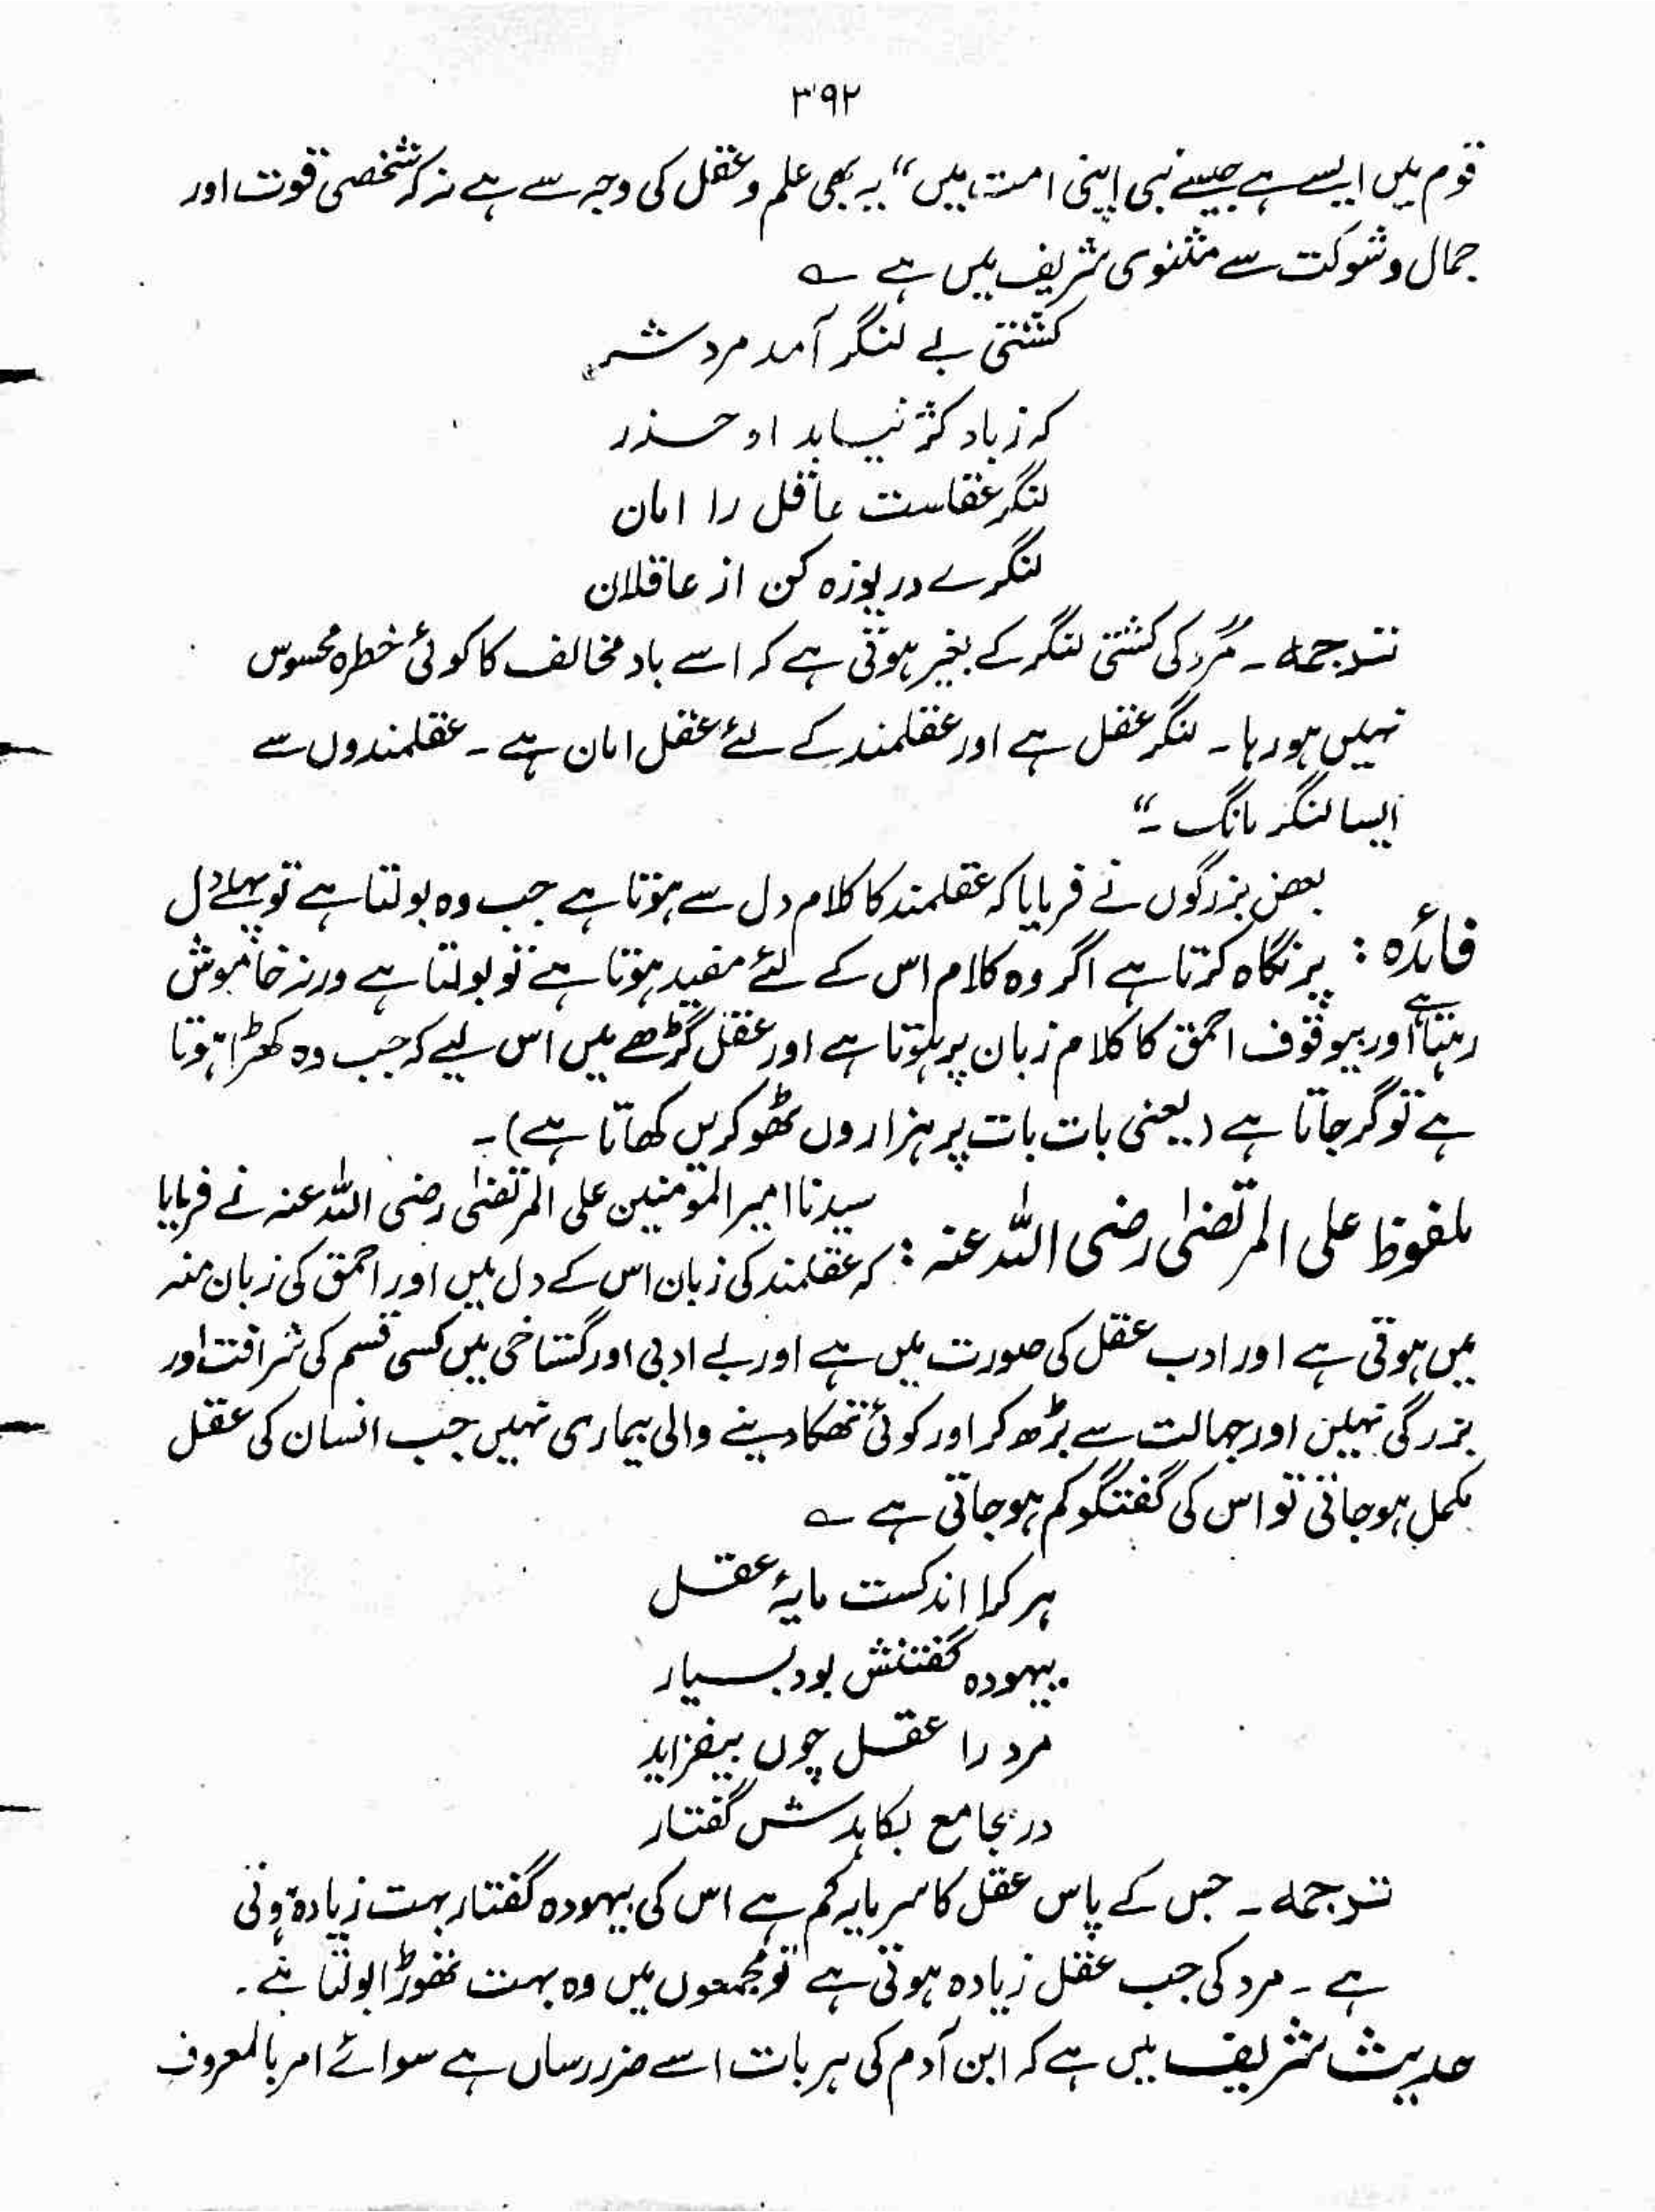 ۳۹۲
قوم میں ایسے ہے جیسے نبی اپنی امت میں“ یہ بھی علم و عقل کی وجہ سے ہے نہ کہ شخصی قوت اور
جمال و شوکت سے مثنوی شریف میں ہے ؎
کشتی بے لنگر آمد مرد شر
کہ زباد کژ نیابد او حذر
لنگر عقلست عاقل را امان
لنگرے دریوزہ کن از عاقلان
ترجمہ ۔ مرد کی کشتی لنگر کے بغیر ہوتی ہے کہ اسے باد مخالف کا کوئی خطرہ محسوس
نہیں ہورہا ۔ لنگر عقل ہے اور عقلمند کے لئے عقل امان ہے ۔ عقلمندوں سے
ایسا لنگر مانگ ۔“
بعض بزرگوں نے فرمایا کہ عقلمند کا کلام دل سے ہوتا ہے جب وہ بولتا ہے تو پہلے دل
فائدہ : پر نگاہ کرتا ہے اگر وہ کلام اس کے لئے مفید ہوتا ہے تو بولتا ہے ورنہ خاموش
رہتا ہے اور بیوقوف احمق کا کلام زبان پر ہوتا ہے اور عقل گڑھے میں اس لیے کہ جب وہ کھڑا ہوتا
ہے تو گر جاتا ہے (یعنی بات بات پر ہزاروں ٹھوکریں کھاتا ہے)۔
ملفوظ علی المرتضیٰ رضی اللہ عنہ : سیدنا امیر المومنین علی المرتضیٰ رضی اللہ عنہ نے فرمایا
کہ عقلمند کی زبان اس کے دل میں اور احمق کی زبان منہ
میں ہوتی ہے اور ادب عقل کی صورت میں ہے اور بے ادبی اور گستاخی میں کسی قسم کی شرافت اور
بزرگی نہیں اور جہالت سے بڑھ کر اور کوئی تھکا دینے والی بیماری نہیں جب انسان کی عقل
مکمل ہوجاتی تو اس کی گفتگو کم ہوجاتی ہے ؎
ہر کرا اندکست مایۂ عقل
بیہودہ گفتنش بود بسیار
مرد را عقل چوں بیفزاید
در مجامع بکاہدش گفتار
ترجمہ ۔ جس کے پاس عقل کا سرمایہ کم ہے اس کی بیہودہ گفتار بہت زیادہ ہوتی
ہے ۔ مرد کی جب عقل زیادہ ہوتی ہے تو مجمعوں میں وہ بہت تھوڑا بولتا ہے ۔
حدیث شریف میں ہے کہ ابن آدم کی ہر بات اسے ضرر رساں ہے سوائے امر بالمعروف